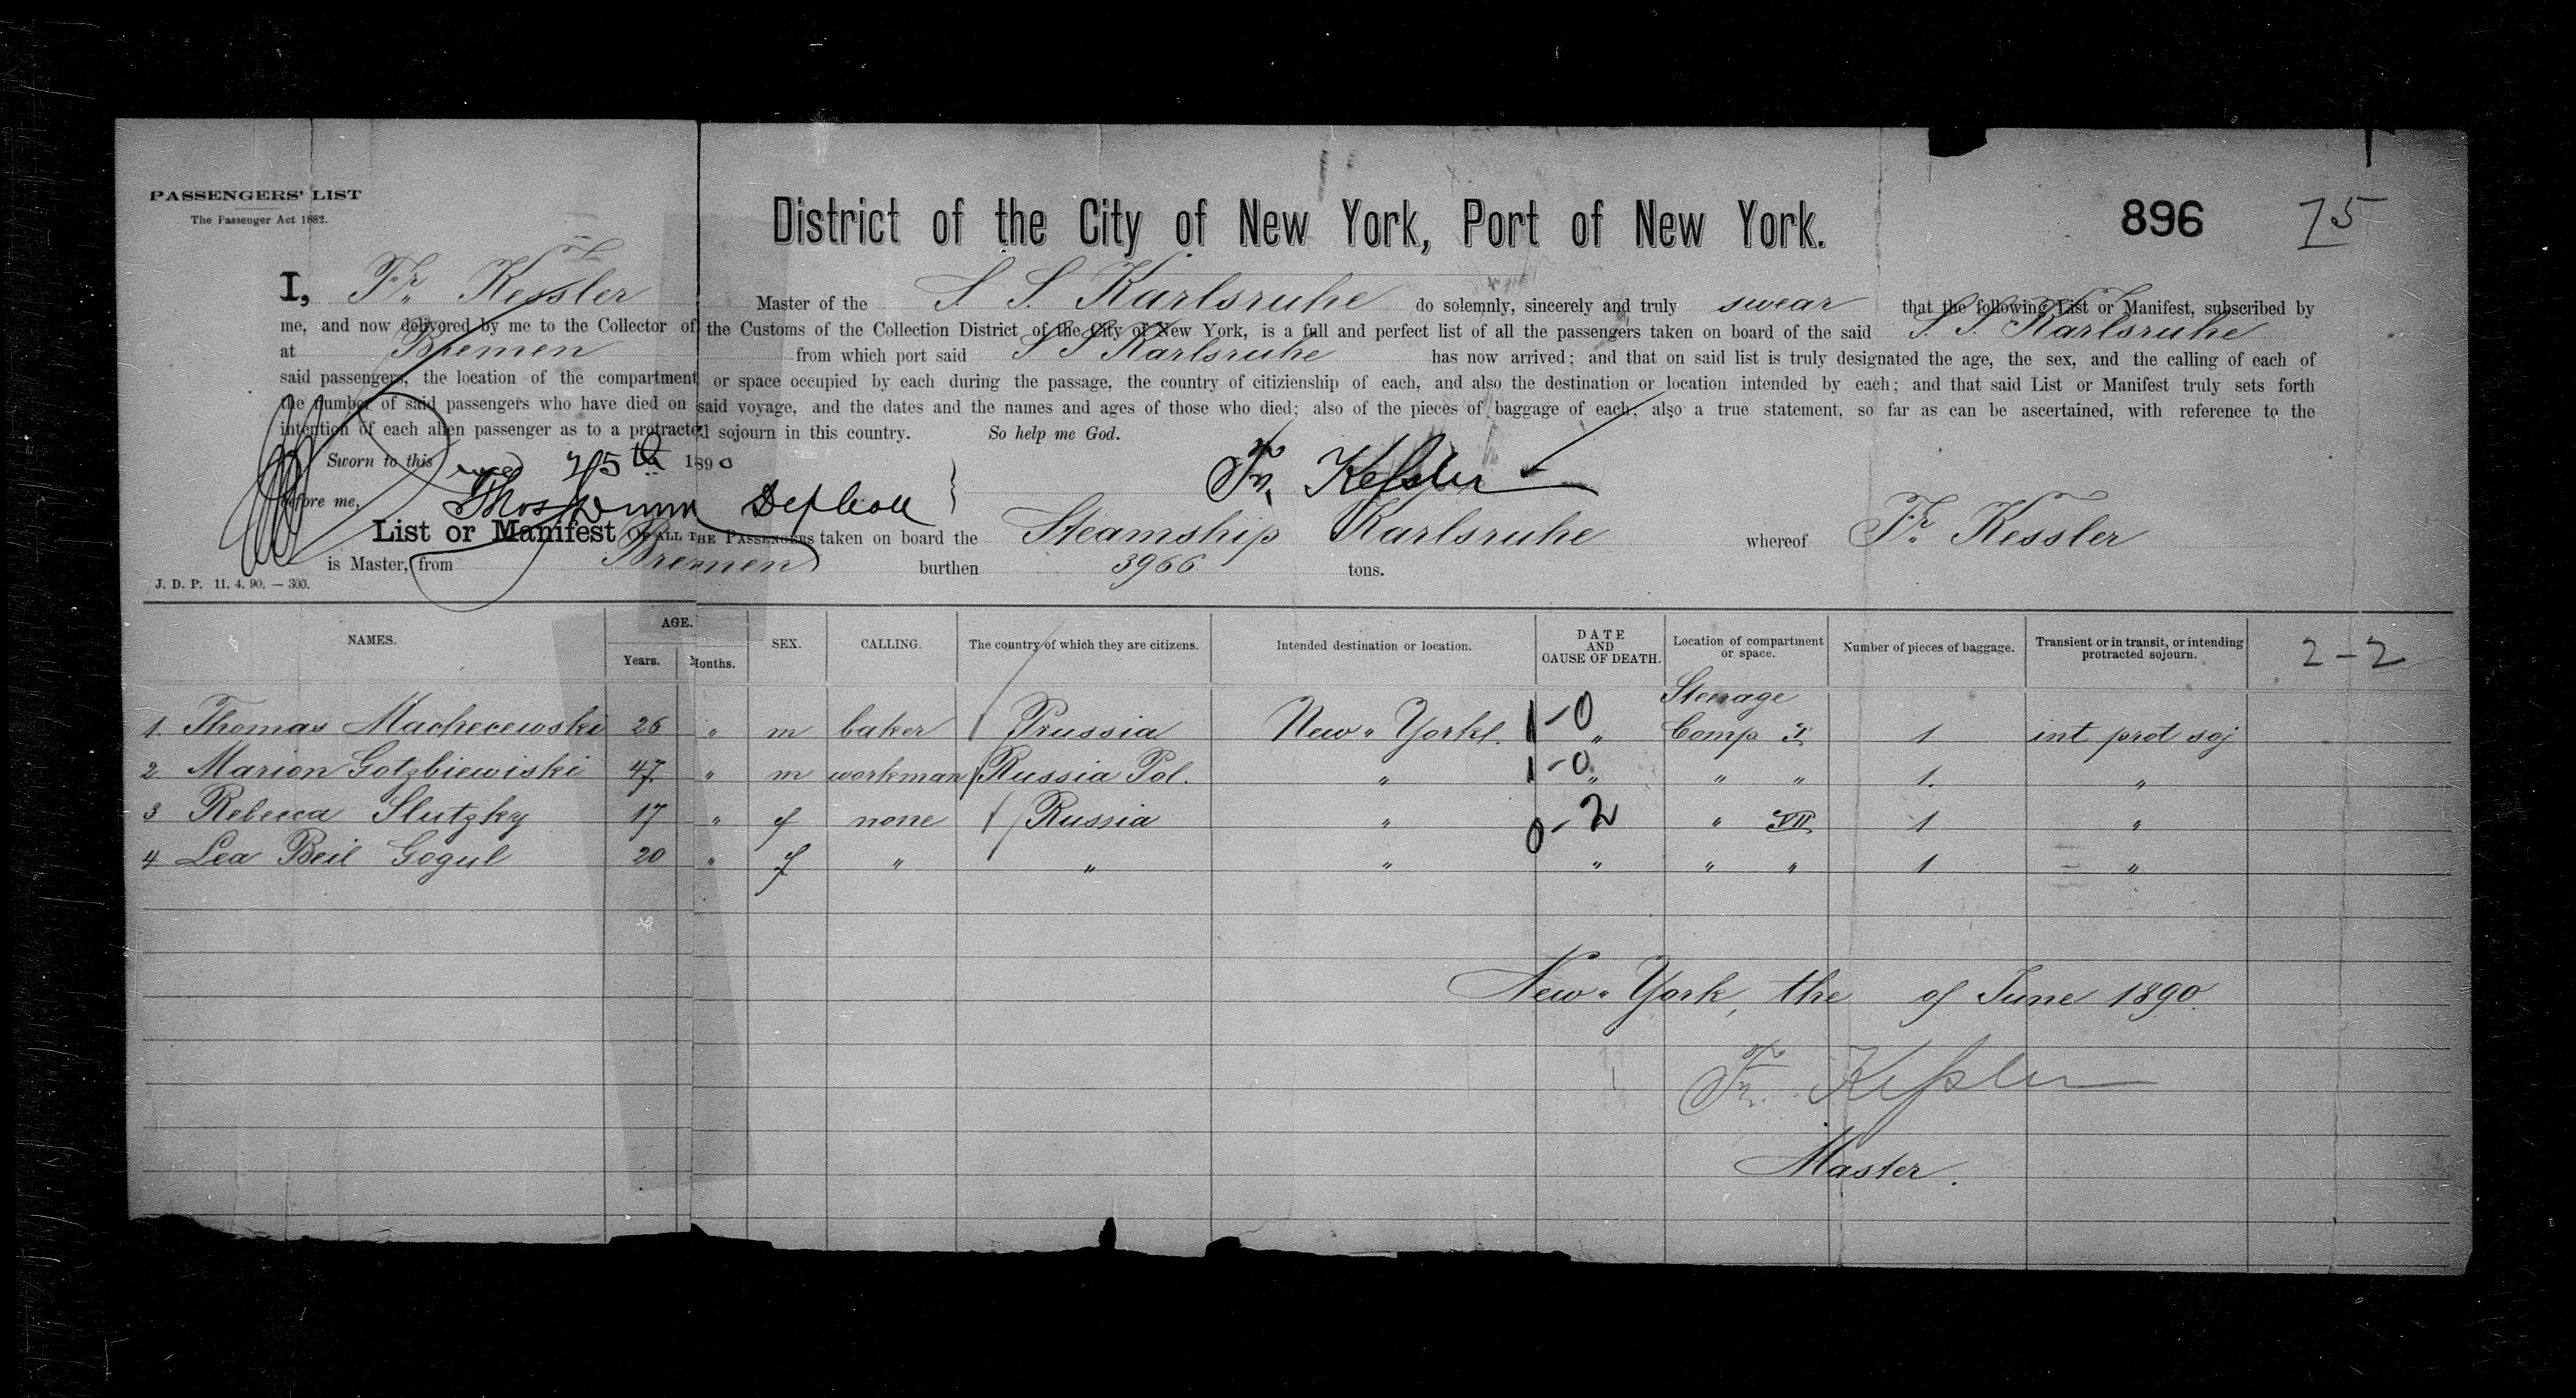 PASSENGERS' LIST
The Passenger Act 1882.
District of the City of New York, Port of New York.
896 75
I, Fr. Kessler Master of the S. S. Karlsruhe do solemnly, sincerely and truly swear that the following List or Manifest, subscribed by
me, and now delivered by me to the Collector of the Customs of the Collection District of the City of New York, is a full and perfect list of all the passengers taken on board of the said S. S. Karlsruhe
at Bremen from which port said S S Karlsruhe has now arrived; and that on said list is truly designated the age, the sex, and the calling of each of
said passengers, the location of the compartment or space occupied by each during the passage, the country of citizienship of each, and also the destination or location intended by each; and that said List or Manifest truly sets forth
the number of said passengers who have died on said voyage, and the dates and the names and ages of those who died; also of the pieces of baggage of each; also a true statement, so far as can be ascertained, with reference to the
intention of each alien passenger as to a protracted sojourn in this country. So help me God.
Sworn to this 25th 1890
Fr. Kessler
before me, Thos
List or Manifest OF ALL THE PASSENGERS taken on board the Steamship Karlsruhe whereof Fr. Kessler
is Master, from Bremen burthen 3966 tons.
J. D. P. 11. 4. 90. — 300.
NAMES. AGE. Years. Months. SEX. CALLING. The country of which they are citizens. Intended destination or location. DATE AND CAUSE OF DEATH. Location of compartment or space. Number of pieces of baggage. Transient or in transit, or intending protracted sojourn. 2-2
Steerage
1. Thomas Machecewski 26 " m baker Prussia New-York. 1-0 " Comp I. 1 int prot soj
2 Marion Gotzbiewiski 47 " m workman Russia Pol. " 1-0 " " " 1. "
3 Rebecca Slutzky 17 " f none Russia " 0-2 " VII 1 "
4 Lea Beil Gogul 20 " f " " " " " " 1 "
New-York, the of June 1890.
Fr. Kessler
Master.